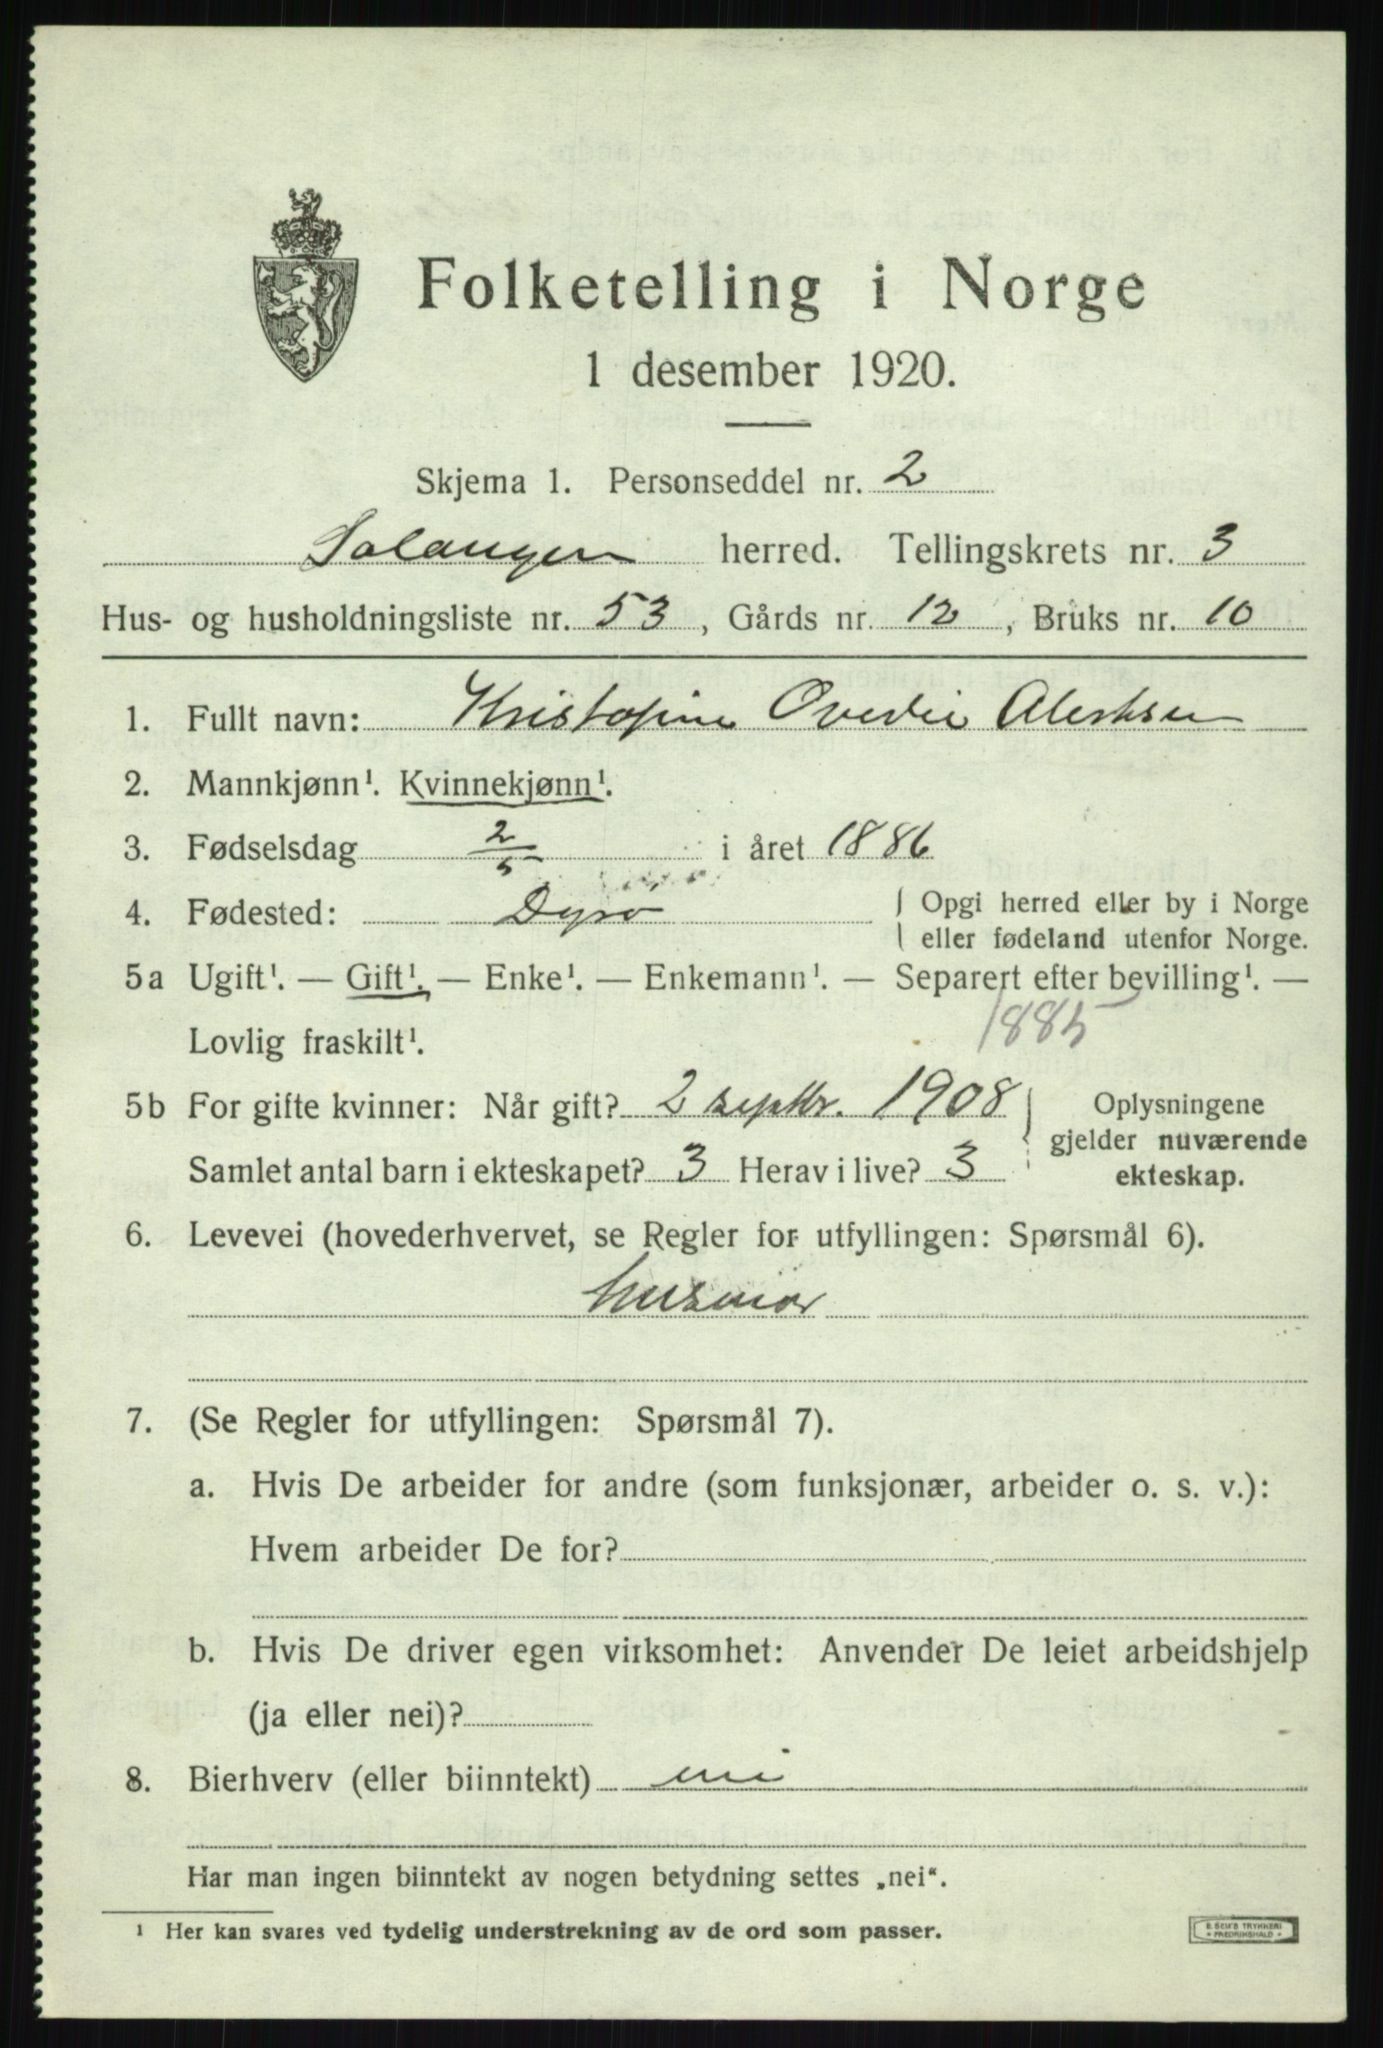 Folketelling i Norge
1 desember 1920.
Skjema 1. Personseddel nr. 2
Salangen herred. Tellingskrets nr. 3
Hus- og husholdningsliste nr. 53, Gårds nr. 12, Bruks nr. 10
1. Fullt navn: Kristofine Ovedie Aleksen
2. Mannkjønn¹. Kvinnekjønn¹.
3. Fødselsdag 2/5 i året 1886
4. Fødested: Dyrø { Opgi herred eller by i Norge
eller fødeland utenfor Norge.
5a Ugift¹. — Gift¹. — Enke¹. — Enkemann¹. — Separert efter bevilling¹. —
Lovlig fraskilt¹. 1885
5b For gifte kvinner: Når gift? 2 septbr. 1908 } Oplysningene
gjelder nuværende
Samlet antal barn i ekteskapet? 3 Herav i live? 3 ekteskap.
6. Levevei (hovederhvervet, se Regler for utfyllingen: Spørsmål 6).
husmor
7. (Se Regler for utfyllingen: Spørsmål 7).
a. Hvis De arbeider for andre (som funksjonær, arbeider o. s. v.):
Hvem arbeider De for?
b. Hvis De driver egen virksomhet: Anvender De leiet arbeidshjelp
(ja eller nei)?
8. Bierhverv (eller biinntekt) nei
Har man ingen biinntekt av nogen betydning settes „nei“.
¹ Her kan svares ved tydelig understrekning av de ord som passer.
E. SEM'S TRYKKERI
* FREDRIKSHALD *